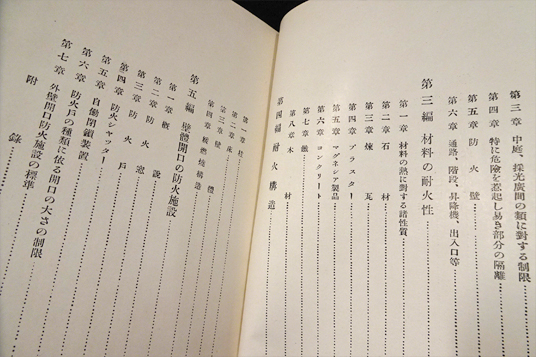 第三章 中庭、採光廣間の類に對する制限
第四章 特に危險を惹起し易き部分の隔離
第五章 防火壁
第六章 通路、階段、昇降機、出入口等
第三編 材料の耐火性
第一章 材料の熱に對する諸性質
第二章 石材
第三章 煉瓦
第四章 プラスター
第五章 マグネシア製品
第六章 コンクリート
第七章 鐵
第八章 木材
第四編 耐火構造
第一章 柱
第二章 床
第三章 壁體
第四章 緩燃燒構造
第五編 壁體開口の防火施設
第一章 概說
第二章 防火窓
第三章 防火戶
第四章 防火シャッター
第五章 自働閉鎖裝置
第六章 防火戶の種類に依る開口の大さの制限
第七章 外壁開口防火施設の標準
附錄